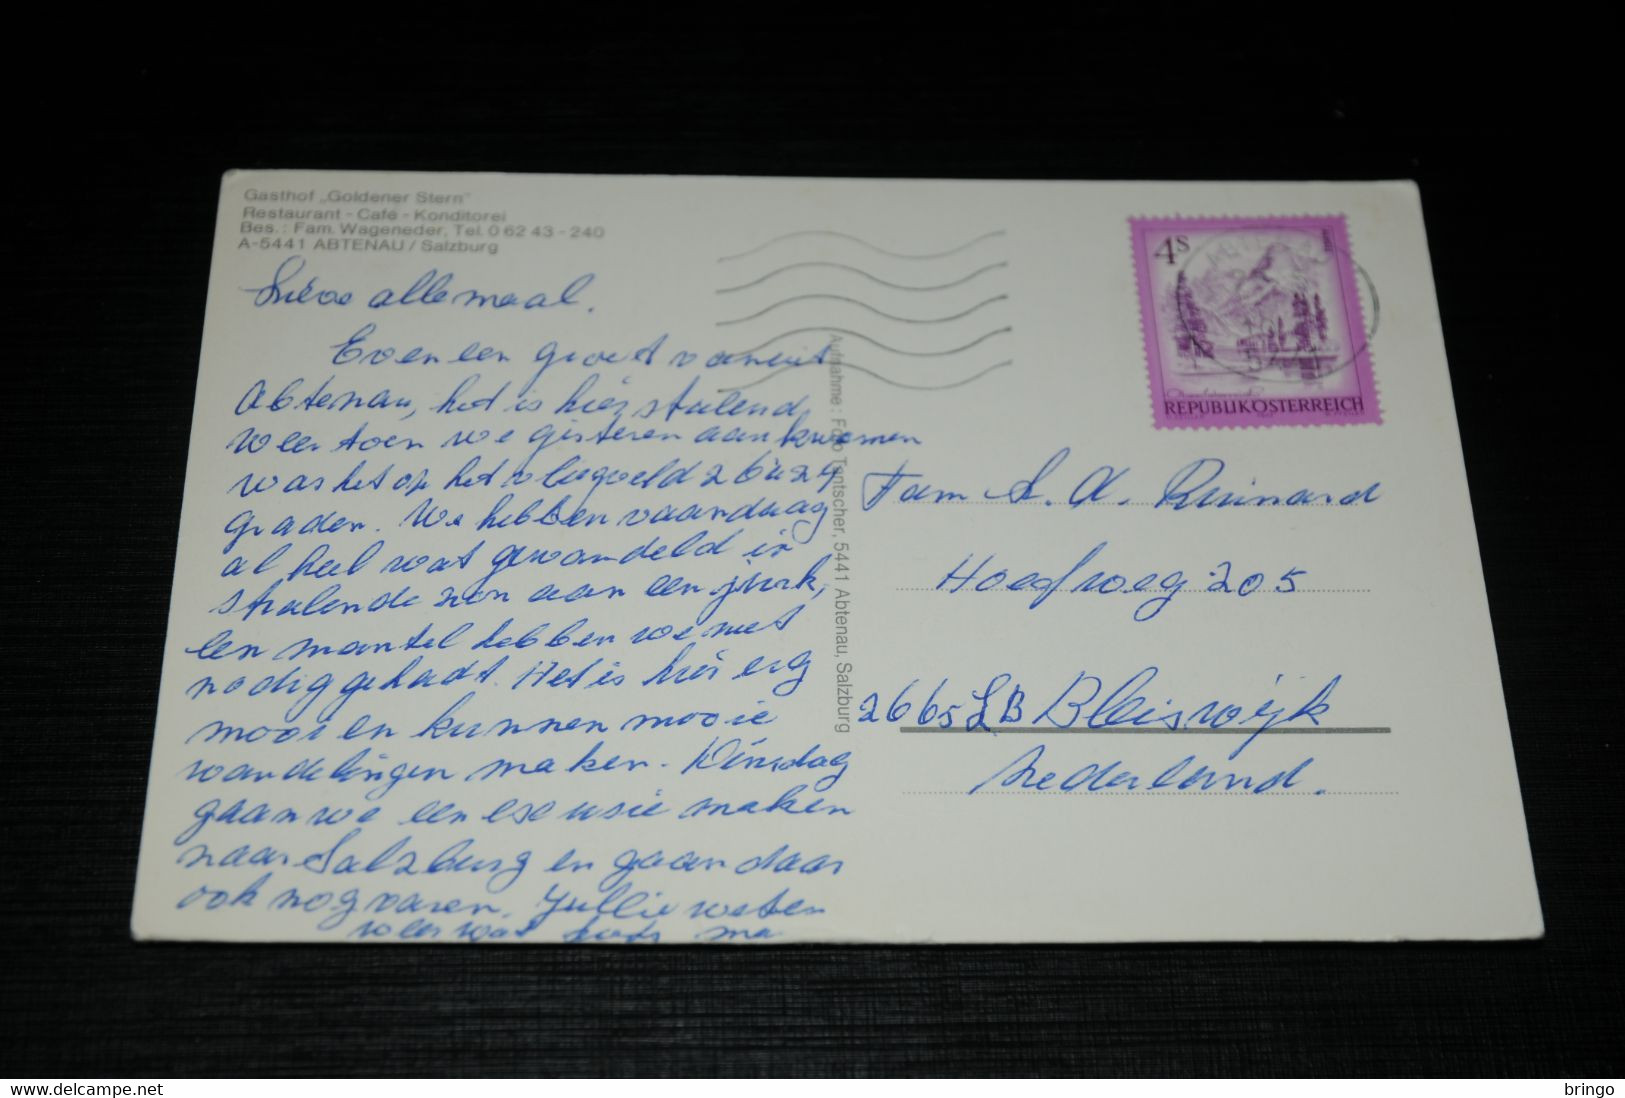 Gasthof „Goldener Stern"
Restaurant - Café - Konditorei
Bes.: Fam. Wageneder, Tel. 0 62 43 - 240
A-5441 ABTENAU / Salzburg
Lieve allemaal.
Even een groet vanuit
Abtenau, het is hier stralend
weer toen we gisteren aankwamen
was het op het vliegveld 26 à 29
graden. We hebben vandaag
al heel wat gewandeld in
stralende zon aan een jurk,
een mantel hebben we niet
nodig gehadt. Het is hier erg
mooi en kunnen mooie
wandelingen maken. Dinsdag
gaan we een excursie maken
naar Salzburg en gaan daar
ook nog varen. Jullie weten
weer wat
Aufnahme: Foto Tantscher, 5441 Abtenau, Salzburg
4 S
REPUBLIK ÖSTERREICH
Fam A. X. Ruimard
Hoefweg 205
2665 LB Bleiswijk
Nederland.
bringo